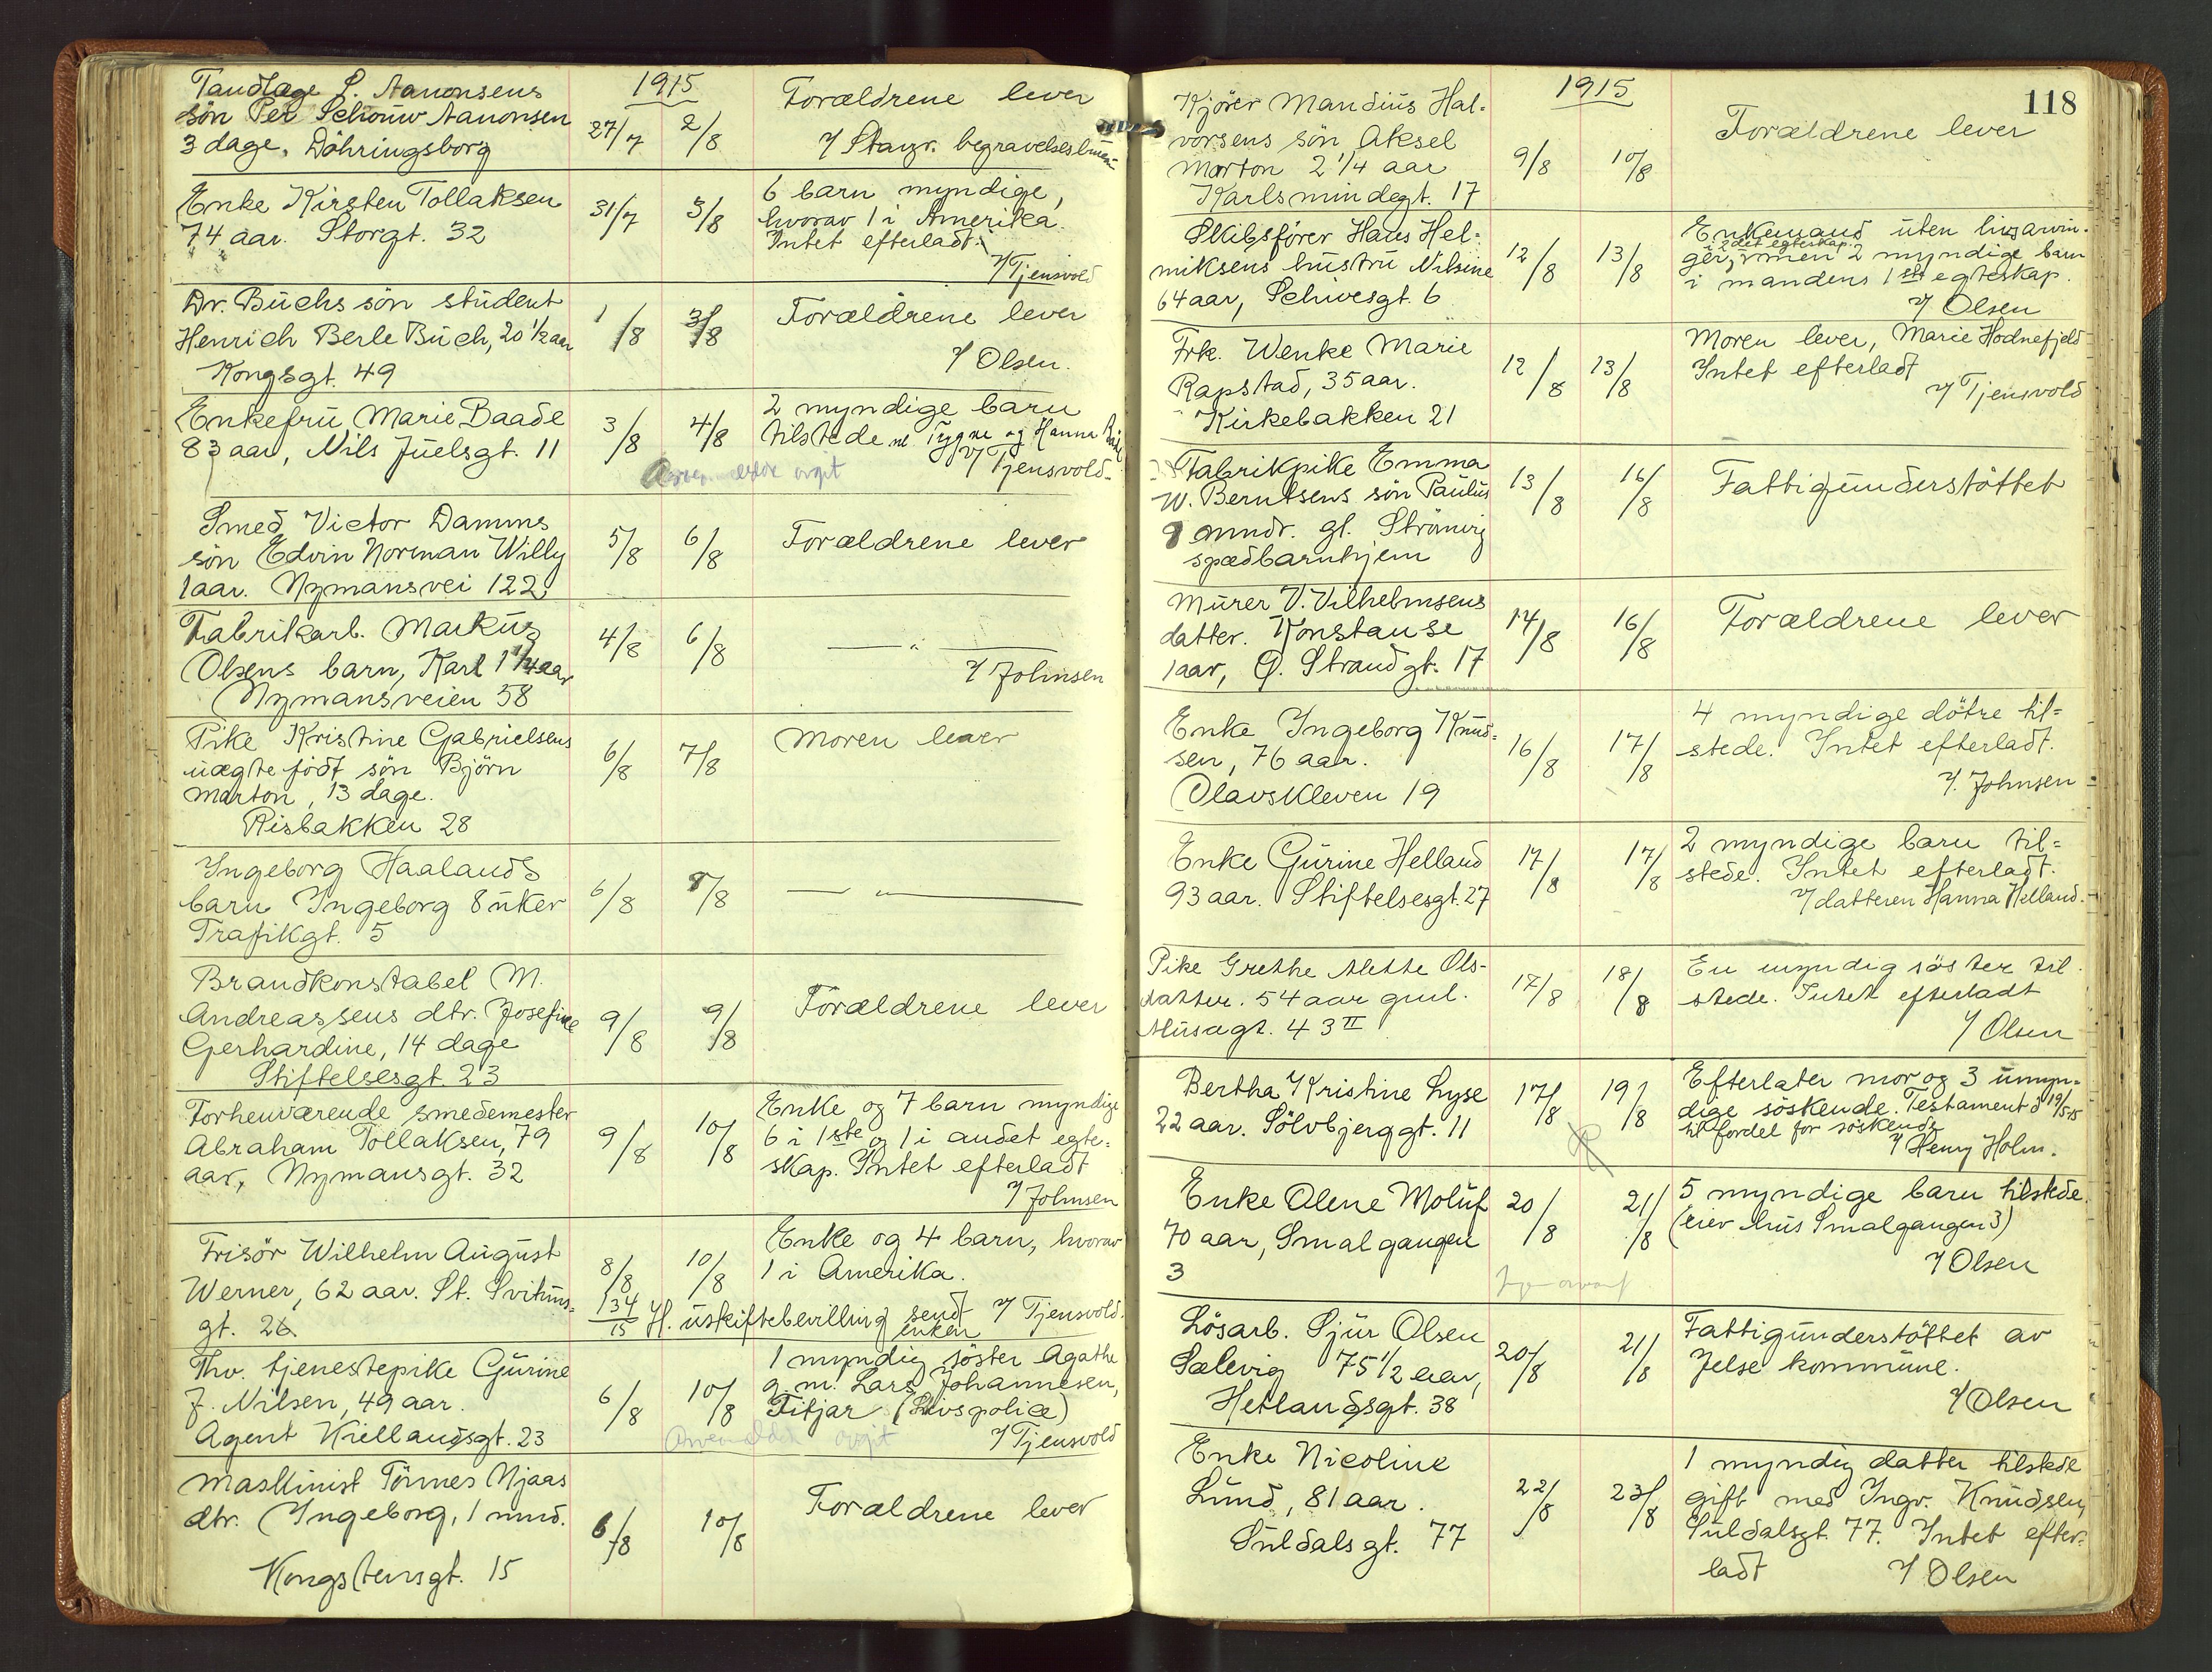 1915
Tandlæge S. Aanonsens
søn Per Schouw Aanonsen
3 dage. Döhringsborg
27/7
2/8
Forældrene lever
y/ Stavgr. begravelses
Enke Kirsten Tollaksen
74 aar. Storgt. 32
31/7
3/8
6 barn myndige,
hvorav 1 i Amerika.
Intet efterladt.
y/ Tjensvold
Dr. Buchs sön student
Henrich Berle Buch, 20 1/2 aar
Kongsgt. 49
1/8
3/8
Forældrene lever
y/ Olsen.
Enkefru Marie Baade
83 aar, Nils Juelsgt. 11
3/8
4/8
2 myndige barn
tilstede nl. Tygne og Hanna
y/ Tjensvold
Smed Victor Damms
sön Edvin Norman Willy
1 aar. Nymansvei 122
5/8
6/8
Forældrene lever
Fabrikarb. Markus
Olsens barn, Karl 1 1/4 aar
Nymansveien 58
4/8
6/8
— " —
y/ Johnsen
Pike Kristine Gabrielsens
uægte födt sön Björn
Marton, 13 dage.
Risbakken 28
6/8
7/8
Moren lever
Ingeborg Haalands
barn Ingeborg 8 uker
Trafikgt. 5
6/8
8/8
— " —
Brandkonstabel M.
Andreassens dtr. Josefine
Gerhardine, 14 dage
Stiftelsesgt. 23
9/8
9/8
Forældrene lever
Forhenværende smedemester
Abraham Tollaksen, 79
aar, Nymansgt. 32
9/8
10/8
Enke og 7 barn myndige
6 i 1ste og 1 i andet egte=
skap. Intet efterladt
y/ Johnsen
Frisör Wilhelm August
Werner, 62 aar. St. Svithuns=
gt. 26
8/8
10/8
Enke og 4 barn, hvorav
1 i Amerika.
134/15 Hl. uskiftebevilling sendt enken y/ Tjensvold.
Fhv. tjenestepike Gurine
J. Nilsen, 49 aar.
Agent Kiellandsgt. 23
6/8
10/8
1 myndig söster Agathe
g. m. Lars Johannesen,
Fitjar (Livspolice)
y/ Tjensvold
Maskinist Tönnes Njaas
dtr. Ingeborg, 1 mnd.
Kongsteinsgt. 15
6/8
10/8
Forældrene lever
1915
118
Kjörer Mandius Hal-
vorsens sön Aksel
Marton 2 1/4 aar
Karlsmindegt. 17
9/8
10/8
Forældrene lever
Skibsförer Hans Hel-
miksens hustru Nilsine
64 aar, Schivesgt. 6
12/8
13/8
Enkemand uten livsarvin-
i 2det egteskap
ger, men 2 myndige barn
i mandens 1ste egteskap.
y/ Olsen
Frk. Wenke Marie
Rapstad, 35 aar.
Kirkebakken 21
12/8
13/8
Moren lever, Marie Hodnefjeld
Intet efterladt
y/ Tjensvold
Fabrikpike Emma
W. Berntsens sön Paulus
8 mndr. gl. Strömvig
spædbarnhjem
13/8
16/8
Fattigunderstöttet
Murer V. Vilhelmsens
datter. Konstanse
1 aar, Ø. Strandgt. 17
14/8
16/8
Forældrene lever
Enke Ingeborg Knud=
sen, 76 aar.
Olavskleven 19
16/8
17/8
4 myndige dötre til=
stede. Intet efterladt.
y/. Johnsen
Enke Gurine Helland
93 aar. Stiftelsesgt. 27
17/8
17/8
2 myndige barn til=
stede. Intet efterladt.
y/ datteren Hanna Helland.
Pike Grethe Mette Ols-
datter. 54 aar gml.
Musagt. 43 II
17/8
18/8
En myndig söster til
stede. Intet efterladt
y/ Olsen
Bertha Kristine Lyse
22 aar. Sölvbjerggt. 11
17/8
19/8
Efterlater mor og 3 umyn=
dige söskende. Testament d 19/5-15
til fordel for söskende
y/ Henry Holm.
Enke Olene Moluf
70 aar, Smalgangen
3
20/8
21/8
5 myndige barn tilstede.
(eier hus Smalgangen 3)
y/ Olsen
Lösarb. Sjur Olsen
Sælevig 75 1/2 aar,
Hetlandsgt. 38
20/8
21/8
Fattigunderstöttet av
Jelse kommune.
y/ Olsen
Enke Nicoline
Lund, 81 aar.
Suldalsgt. 77
22/8
23/8
1 myndig datter tilstede
gift med Ingv. Knudsen,
Suldalsgt. 77. Intet efter=
ladt y/ Olsen